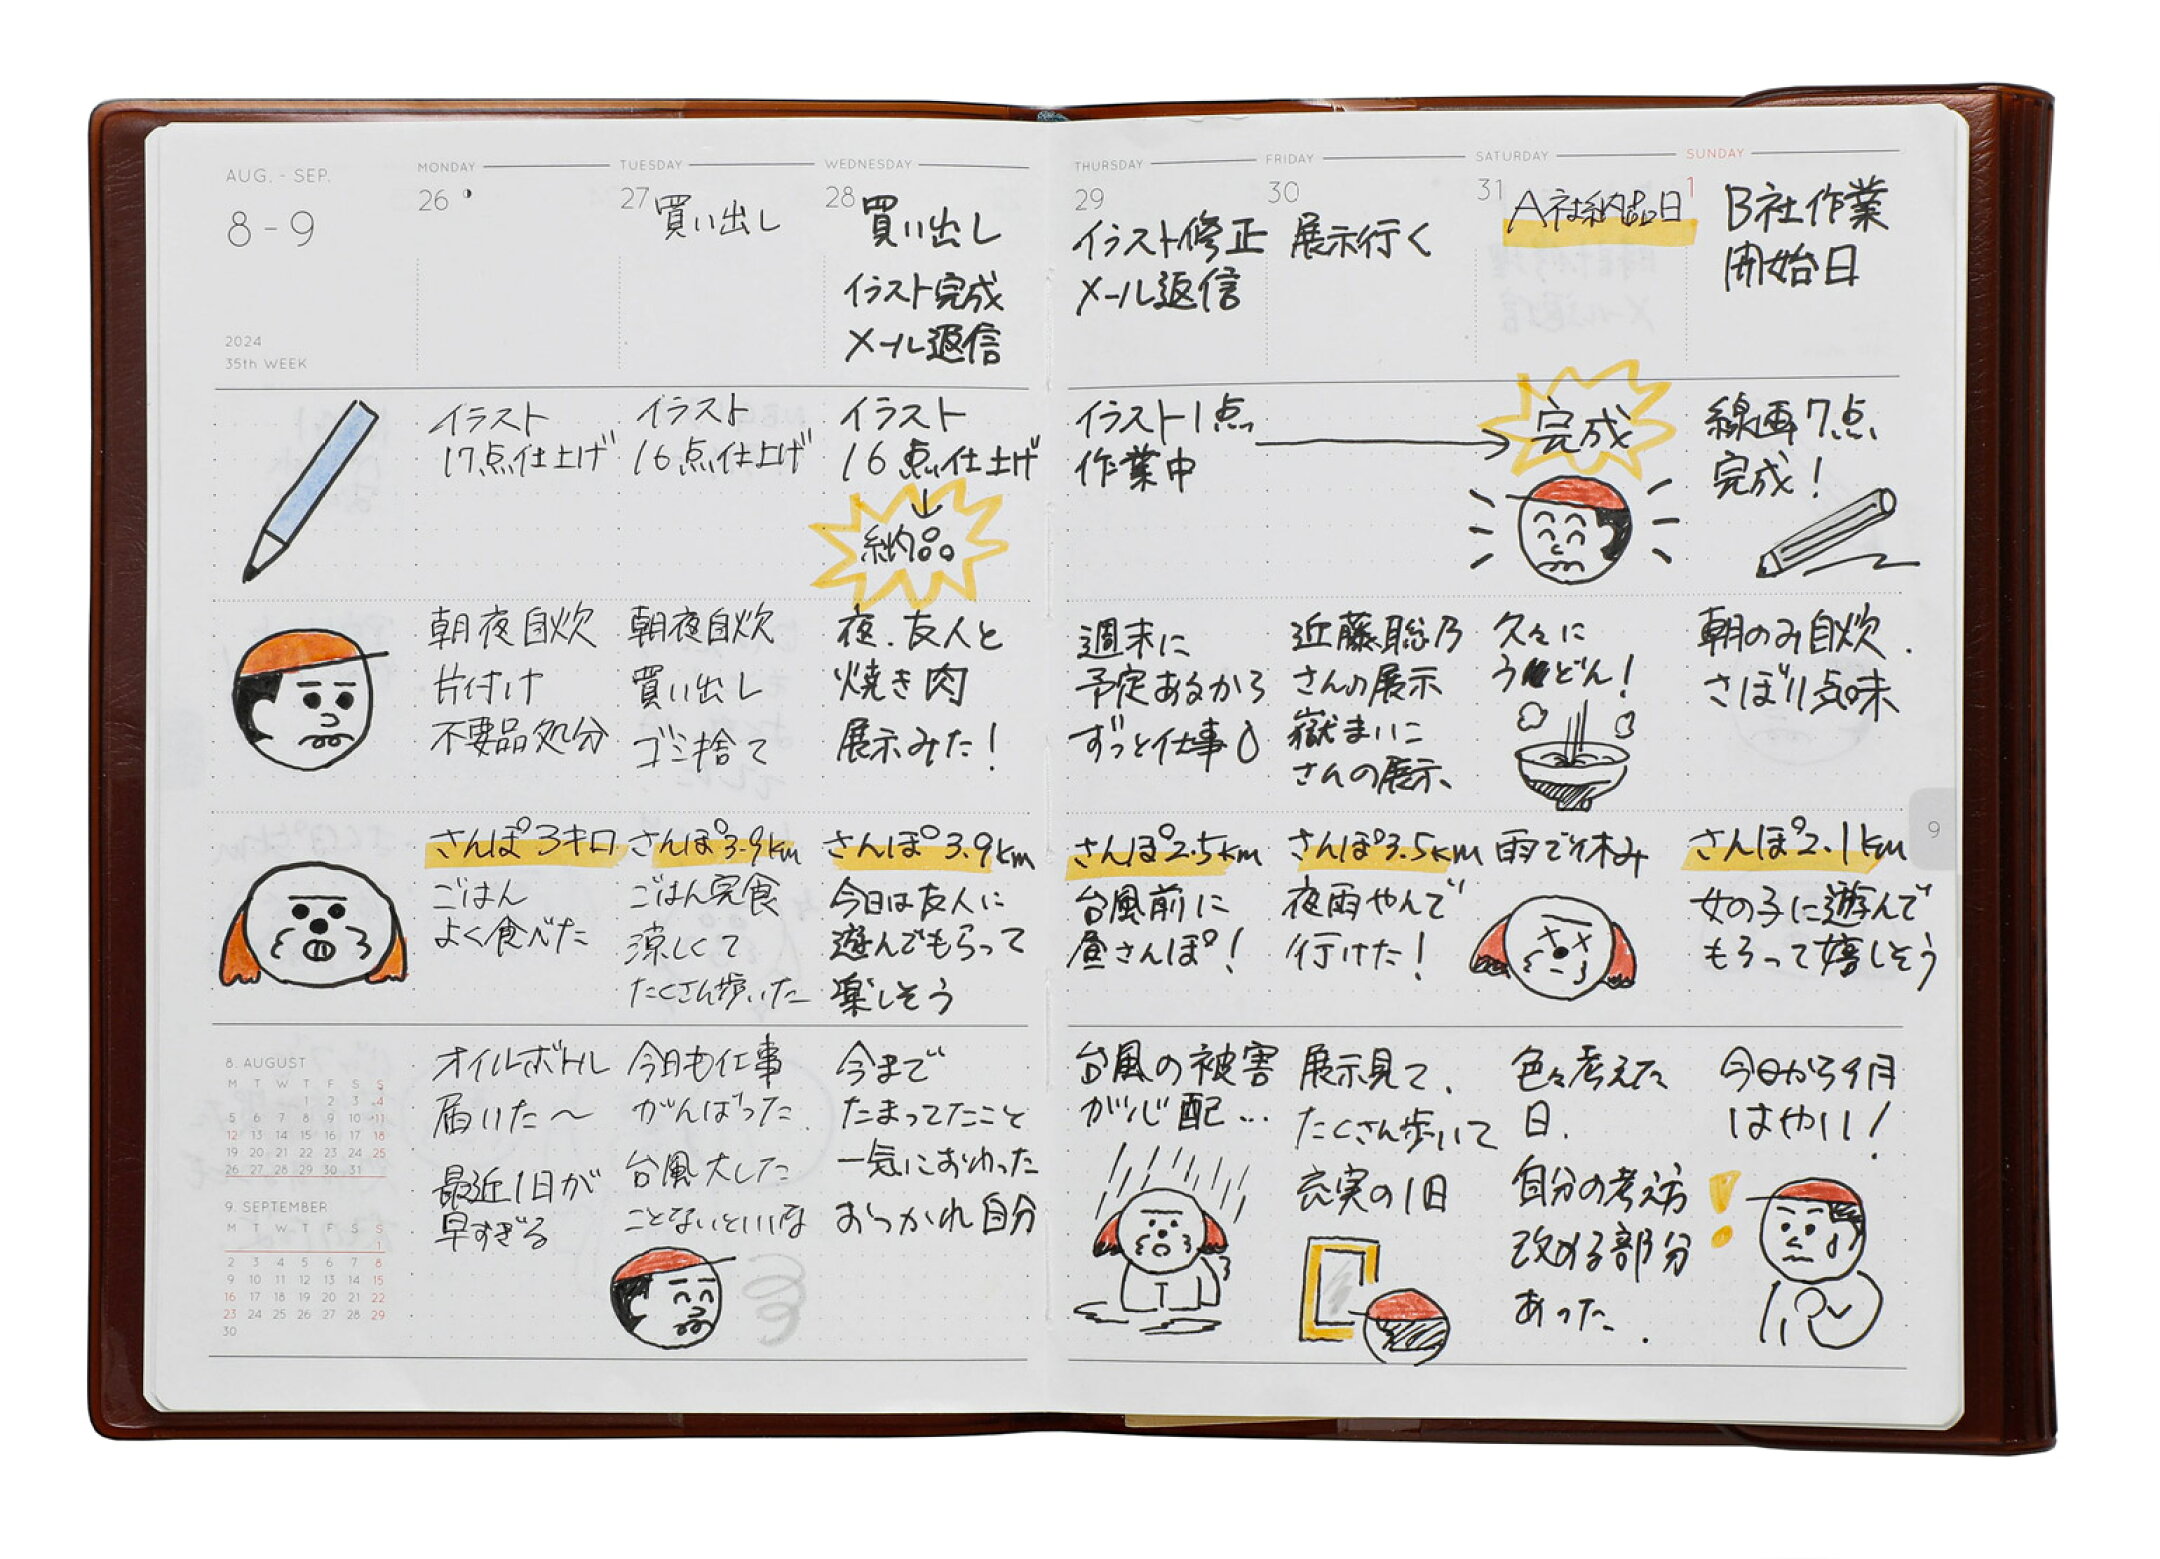 AUG. - SEP.
8 - 9
2024
35th WEEK
MONDAY
26
TUESDAY
27
買い出し
WEDNESDAY
28
買い出し
イラスト完成
メール返信
THURSDAY
29
イラスト修正
メール返信
FRIDAY
30
展示行く
SATURDAY
31
A社納品日
SUNDAY
1
B社作業
開始日
イラスト
17点仕上げ
イラスト
16点仕上げ
イラスト
16点仕上げ
↓
納品
イラスト1点
作業中
完成
線画7点
完成!
朝夜自炊
片付け
不要品処分
朝夜自炊
買い出し
ゴミ捨て
夜、友人と
焼き肉
展示みた!
週末に
予定あるから
ずっと仕事
近藤聡乃
さんの展示
嶽まいこ
さんの展示、
久々に
うどん!
朝のみ自炊.
さぼり気味
さんぽ3キロ
ごはん
よく食べた
さんぽ3.9km
ごはん完食
涼しくて
たくさん歩いた
さんぽ3.9km
今日は友人に
遊んでもらって
楽しそう
さんぽ2.5km
台風前に
昼さんぽ!
さんぽ3.5km
夜雨やんで
行けた!
雨で休み
さんぽ2.1km
女の子に遊んで
もらって嬉しそう
9
8. AUGUST
M T W T F S S
1 2 3 4
5 6 7 8 9 10 11
12 13 14 15 16 17 18
19 20 21 22 23 24 25
26 27 28 29 30 31
9. SEPTEMBER
M T W T F S S
1
2 3 4 5 6 7 8
9 10 11 12 13 14 15
16 17 18 19 20 21 22
23 24 25 26 27 28 29
30
オイルボトル
届いた〜
最近1日が
早すぎる
今日も仕事
がんばった.
台風大した
ことないといいな
今まで
たまってたこと
一気におわった
おつかれ自分
台風の被害
が心配…
展示見て、
たくさん歩いて
充実の1日
色々考えた
日.
自分の考え方
改める部分
あった.
今日から9月
はやい!